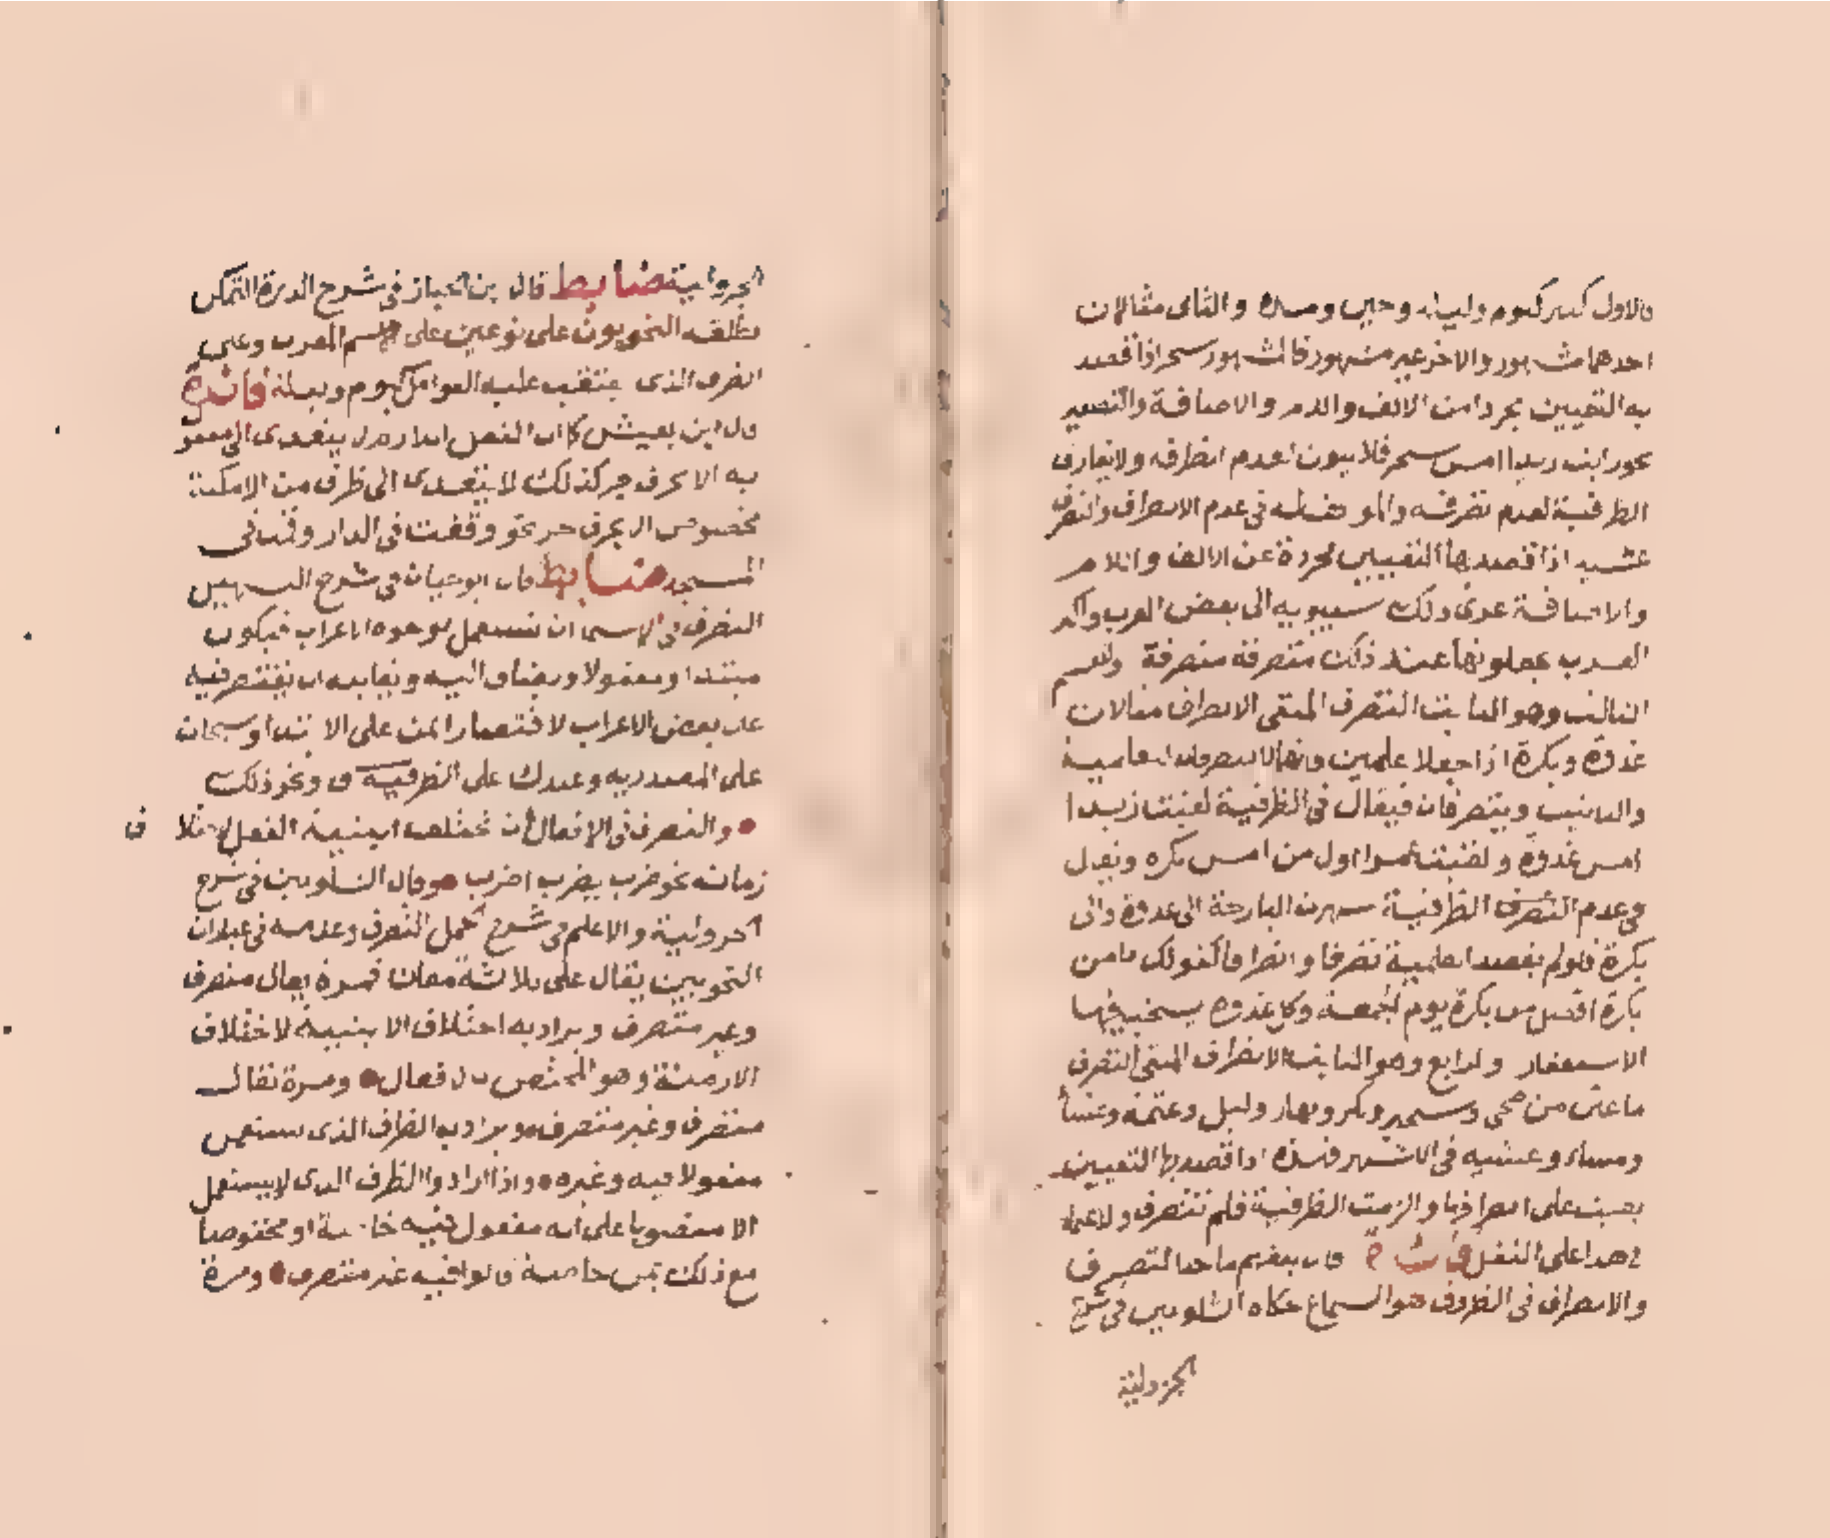 فالاول كثير كيوم وليلة وحين ومدة والثاني مثالان
احدهما مشهور والاخر غير مشهور فالمشهور سحر اذا قصد
به التعيين مجردا من الالف واللام والاضافة والتصغير
نحو رايت زيدا امس سحر فلا ينون لعدم انصرافه ولا يفارق
الظرفية لعدم تصرفه والموافق له في عدم الانصراف والتصرف
عشية اذا قصد بها التعيين مجردة عن الالف واللام
والاضافة عزى ذلك سيبويه الى بعض العرب واكثر
العرب يجعلونها عند ذلك متصرفة منصرفة والقسم
الثالث وهو الثابت التصرف المنتفى الانصراف مثالان
غدوة وبكرة اذا جعلا علمين فانهما لا ينصرفان للعلمية
والتانيث ويتصرفان فيقال في الظرفية لقيت زيدا
امس غدوة ولقيت عمرا اول من امس بكرة ويقال
في عدم الظرفية سهرت البارحة الى غدوة والى
بكرة فلو لم يقصد العلمية تصرفا وانصرفا كقولك ما من
بكرة افضل من بكرة يوم الجمعة وكل غدوة يستحب فيها
الاستغفار والرابع وهو الثابت الانصراف المنتفى التصرف
ما عين من ضحى وسحير وبكر ونهار وليل وعتمة وعشاء
ومساء وعشية في الاشهر فهذه اذا قصد بها التعيين
بقيت على انصرافها والزمت الظرفية فلم تتصرف والاعتماد
في هذا على النقل فائدة قال بعضهم ماخذ التصرف
والانصراف في الظروف هو السماع حكاه الشلوبين في شرح
الجزولية
الجزولية ضابط قال ابن الخباز في شرح الدرة التمكن
يطلقه النحويون على نوعين على الاسم المعرب وعلى
الظرف الذي يعتقب عليه العوامل كيوم وليلة فائدة
قال ابن يعيش كما ان الفعل اللازم لا يتعدى الى مفعول
به الا بحرف جر كذلك لا يتعدى الى ظرف من الامكنة
مخصوص الا بحرف جر نحو وقفت في الدار وقمت في
المسجد ضابط قال ابو حيان في شرح التسهيل
التصرف في الاسماء ان تستعمل بوجوه الاعراب فيكون
مبتدا ومفعولا ومضافا اليه ويقابله ان يقتصر فيه
على بعض الاعراب لاقتصار ايمن على الابتدا وسبحان
على المصدرية وعندك على الظرفية ونحو ذلك
والتصرف في الافعال ان تختلف ابنية الفعل لاختلاف
زمانه نحو ضرب يضرب اضرب وقال الشلوبين في شرح
الجزولية والاعلم في شرح الجمل التصرف وعدمه في عبارات
النحويين يقال على ثلاثة معان فمرة يقال متصرف
وغير متصرف ويراد به اختلاف الابنية لاختلاف
الازمنة وهو المختص بالافعال ومرة يقال
متصرف وغير متصرف ويراد به الظرف الذي يستعمل
مفعولا فيه وغيره واذا ارادوا الظرف الذي لا يستعمل
الا منصوبا على انه مفعول فيه خاصة او مخفوضا
مع ذلك بمن خاصة قالوا فيه غير متصرف ومرة